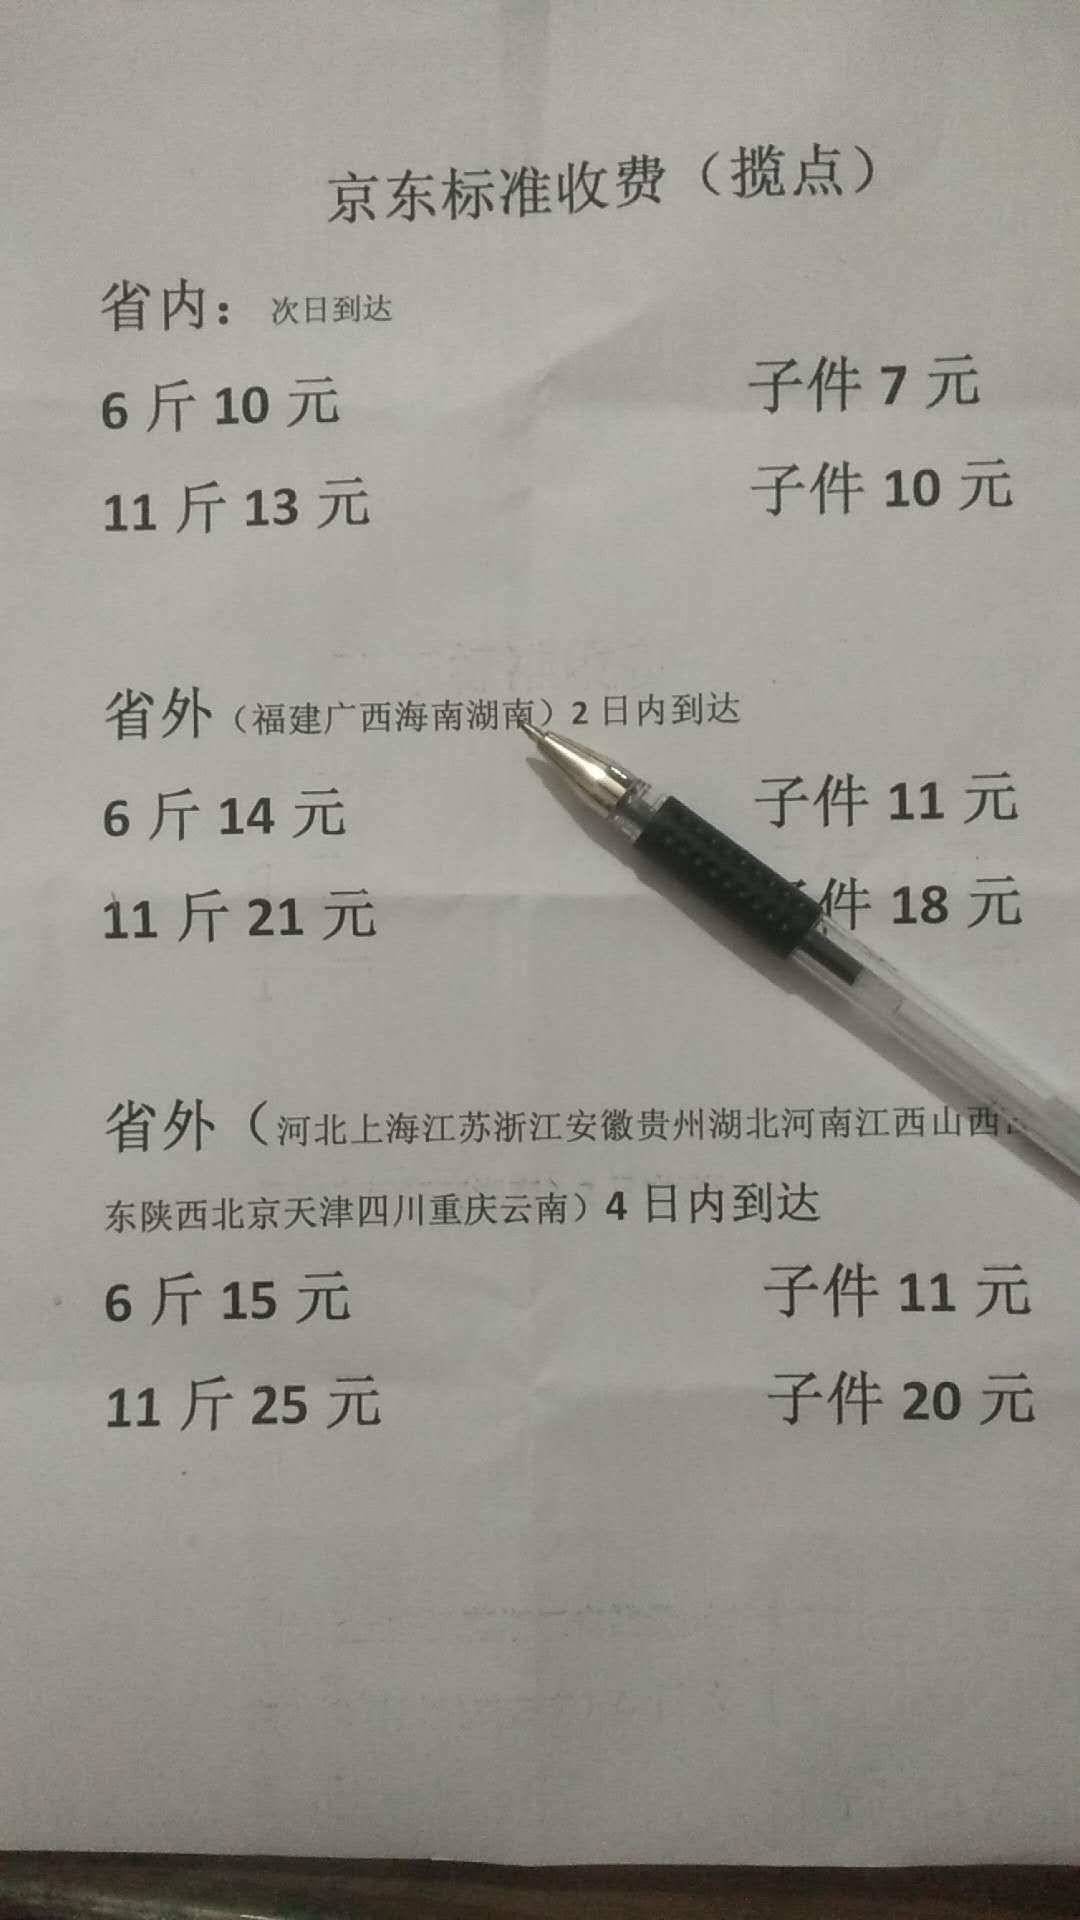 京东标准收费（揽点）
省内：次日到达
6斤10元 子件7元
11斤13元 子件10元
省外（福建广西海南湖南）2日内到达
6斤14元 子件11元
11斤21元 件18元
省外（河北上海江苏浙江安徽贵州湖北河南江西山西
东陕西北京天津四川重庆云南）4日内到达
6斤15元 子件11元
11斤25元 子件20元